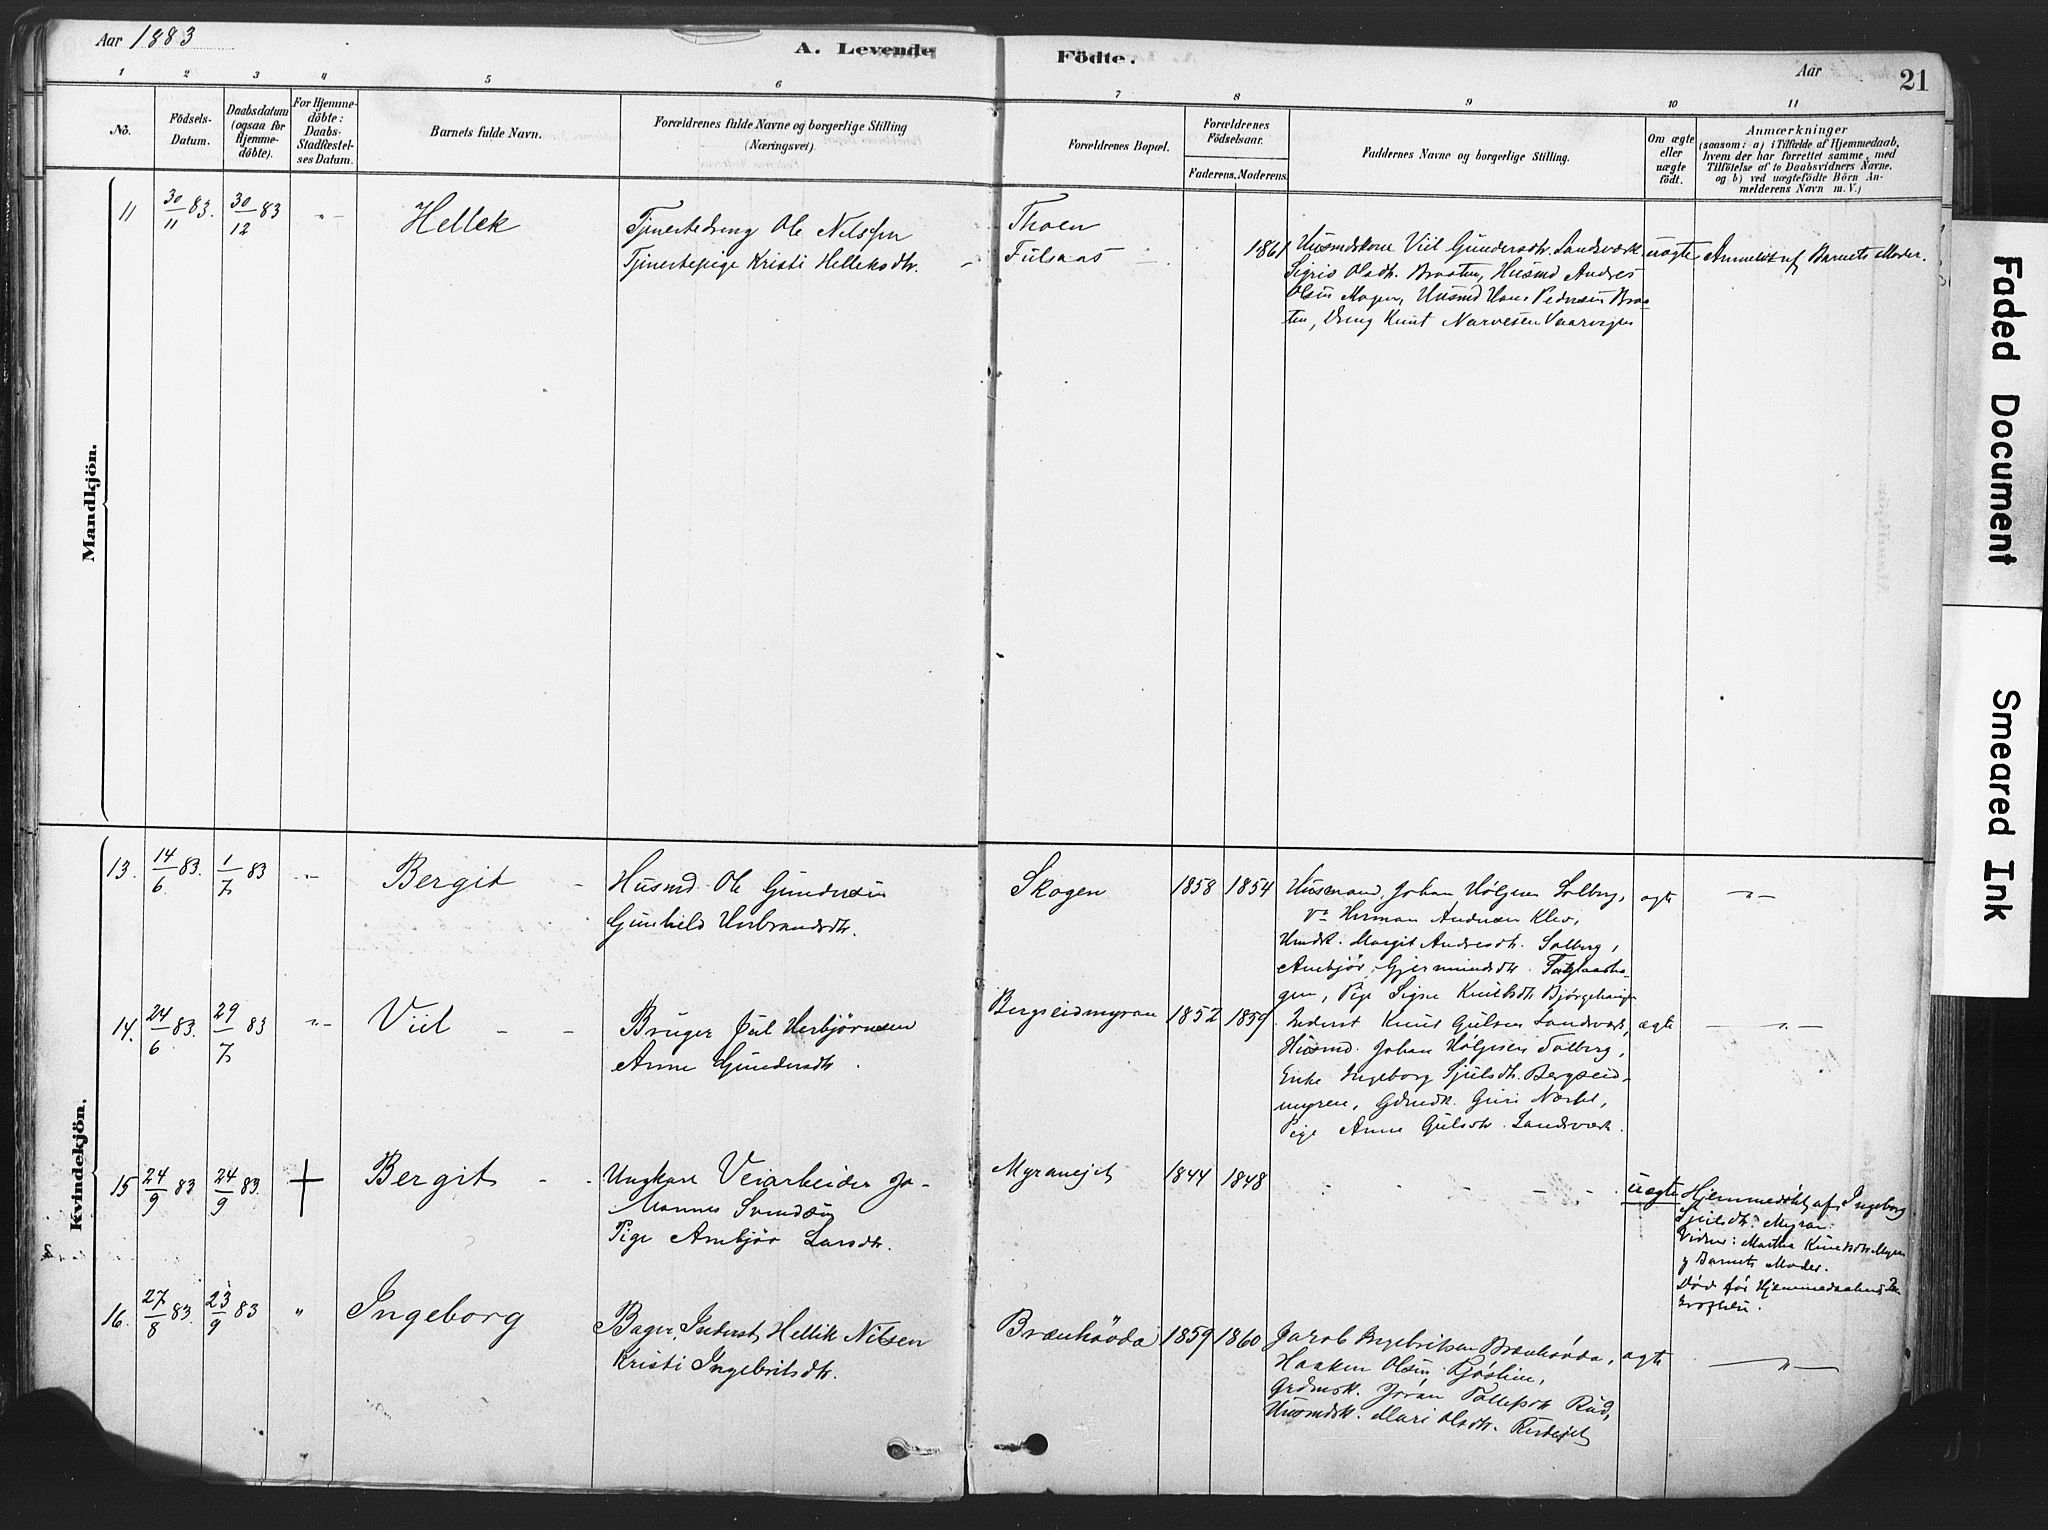 Aar 1883
A. Levende
Födte.
Aar
21
1
2
3
4
5
6
7
8
9
10
11
No.
Födsels-
Datum.
Daabsdatum
(ogsaa for
Hjemme-
döbte).
For Hjemme-
döbte:
Daabs-
Stadfæstel-
ses Datum.
Barnets fulde Navn.
Forældrenes fulde Navne og borgerlige Stilling
(Næringsvei).
Forældrenes Bopæl.
Forældrenes
Födselsaar.
Faderens. Moderens.
Faddernes Navne og borgerlige Stilling.
Om ægte
eller
uægte
födt.
Anmærkninger
(saasom: a) i Tilfælde af Hjemmedaab,
hvem der har forrettet samme, med
Tilföielse af to Daabsvidners Navne,
og b) ved uægtefödte Börn An-
melderens Navn m. V.)
Mandkjön.
11
30/11 83.
30/12 83
Hellek
Tjenestedreng Ole Nilssen
Tjenestepige Kristi Helleksdtr.
Thoen
Fulsaas
1861
Husmdskone Viel Gundersdtr. Landsværk,
Sigrid Olsdtr. Braaten, Husmd Andres
Olsen Mogen, Husmd Hans Pedersen Braa-
ten, Dreng Knut Narvesen Vaarvigen
uægte
Anmeldt af Barnets Moder.
Kvindekjön.
13.
14/6 83.
1/7 83
Bergit
Husmd. Ole Gundersen
Gunhild Herbrandsdtr.
Skogen
1858
1854
Husmand, Johan Hølgesen Solberg,
Herman Andersen Klev,
Margit Andresdtr. Solberg,
Ambjør Gjermundsdtr.
gen, Pige Signe Knutsdtr
ægte
14.
24/6 83.
29/7 83
Viel
Bruger Jul Herbjørnsen
Anne Gundersdtr.
Bergseidmyran
1852
1859
Inderst Knut Gulsen Landsværk,
Husmd. Johan Hølgesen Solberg,
Enke Ingeborg Gjulsdtr. Bergseid-
myren, Gdmdk. Guri Nørstel,
Pige Anne Gulsdtr. Landsværk.
ægte
15
24/9 83
24/9 83.
Bergit
Ungkarl Veiarbeider Jo-
hannes Svendsen
Pige Ambjør Larsdtr.
Myranejet
1844
1848
uægte
Hjemmedøbt af Ingeborg
Gjulsdtr. Myran.
Vidner: Marthe Knutsdtr Myran
og Barnets Moder.
Død før Hjemmedaabens
16.
27/8 83.
23/9 83
Ingeborg
Bager, Inderst, Hellik Nilsen
Kristi Ingebritsdtr.
Brænhøvda
1859
1860
Jacob Ingebritsen Brænhøvda,
Haaken Olsen Kjøslien,
Grdmsk. Jøran Tollefsdtr Rud,
Husmdsk. Mari Olsdtr. Rudejet
ægte
Faded Document
Smeared Ink